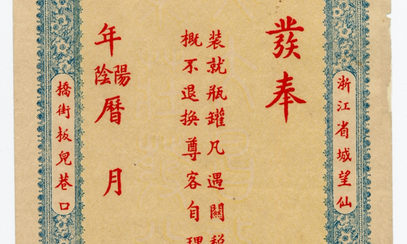 浙江省城望仙
發奉
裝就瓶罐凡遇關稅
概不退換尊客自理
年陰陽曆 月
橋街扳兒巷口